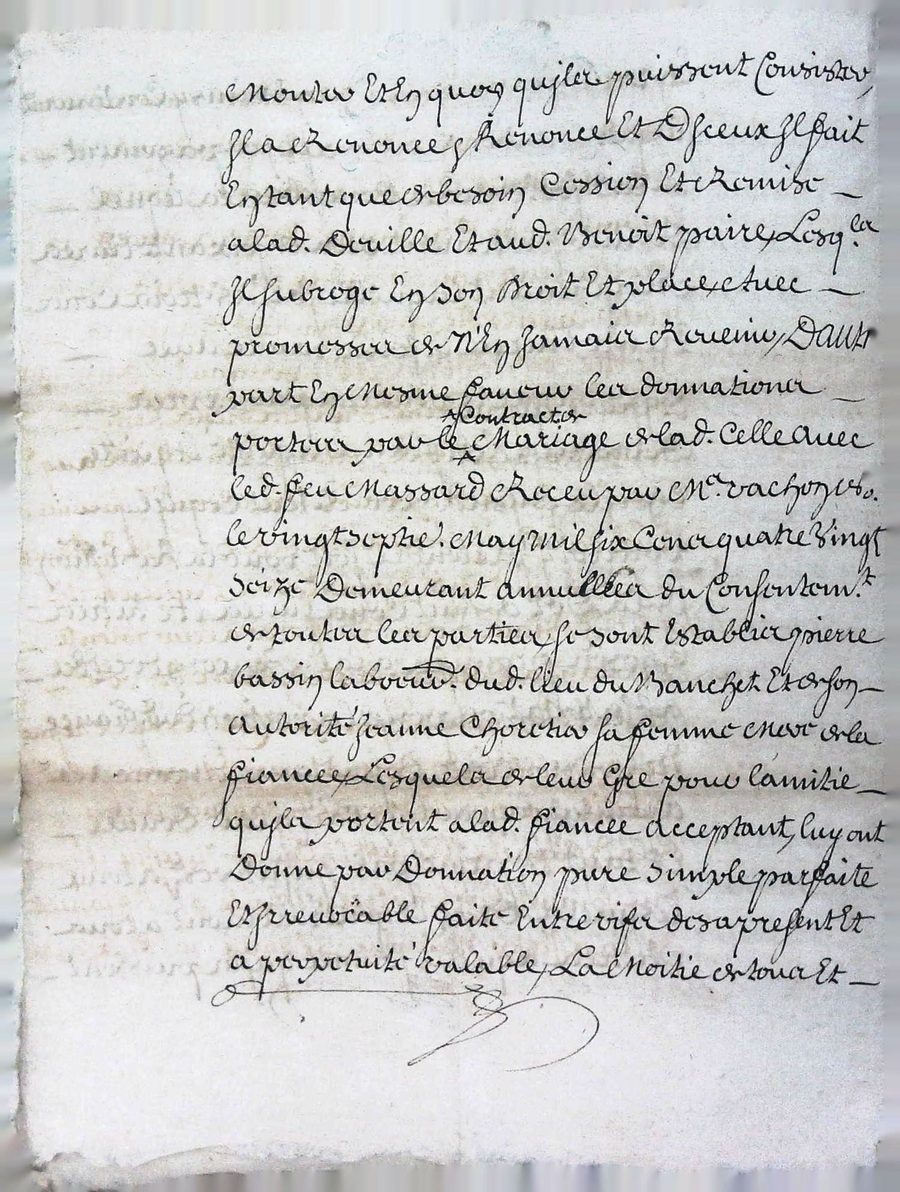 Monter Et En quoy qujls puissent Consister,
Jl a Renonce, Renonce Et Djceux Jl fait
En tant que de besoin Cession Et Remise _
a lad. Deville Et aud. Benoit paire, Lesq.ls
Jl subroge En son Droit Et place, Avec _
promesses de N'En Jamais Revenir, Dautr
part En Mesme faveur les donnations _
porteés par le Contract de Mariage de lad. Celle Avec
led. feu Massard Receu par Me. vachon No.
le vingt septie. May Mil six Cens quatre vingt
seize Demeurant annullées du Consentem.t
de toutes les parties, se sont Establis pierre
bassin laboeur. dud. lieu du Banchet Et de son _
Autorité Jeanne Choretier sa femme Mere de la
fiancee, Lesquels de leur Gre pour lamitie _
qujls portent a lad. fiancee acceptant, luy ont
Donne par Donnation pure simple parfaite
Et Jrrevocable faite Entre vifs des a present Et
a perpetuité valable, La Moitie de tous Et _